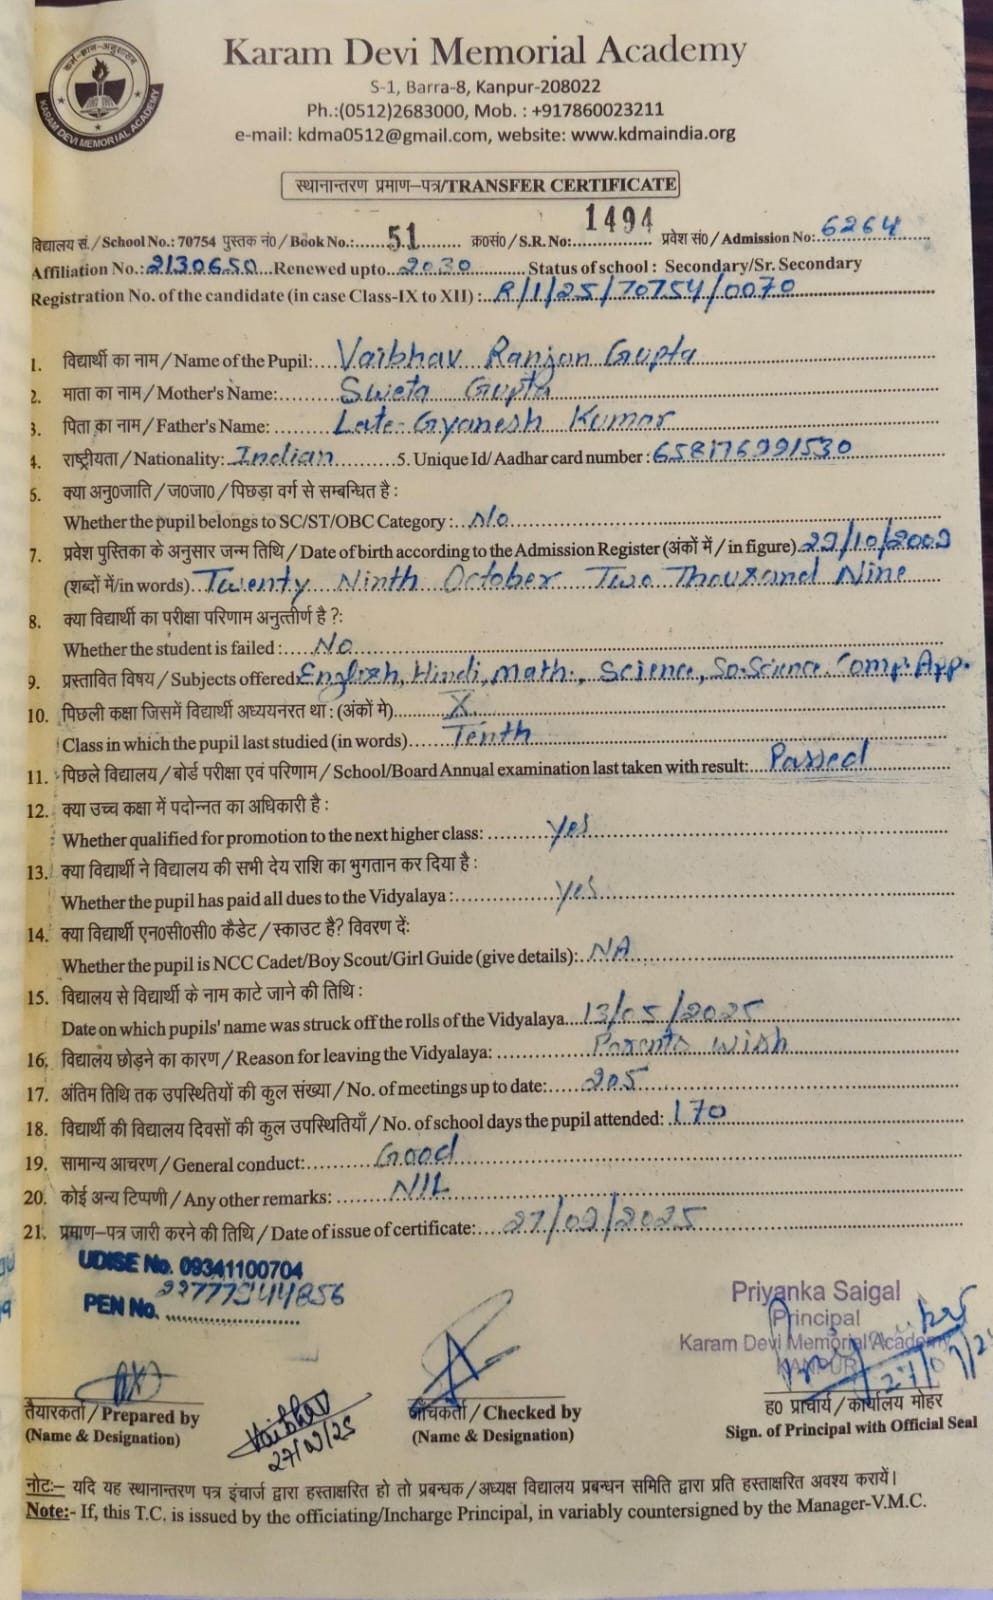 कर्म-ज्ञान-अनुशासन
KARAM DEVI MEMORIAL ACADEMY
Karam Devi Memorial Academy
S-1, Barra-8, Kanpur-208022
Ph.:(0512)2683000, Mob. : +917860023211
e-mail: kdma0512@gmail.com, website: www.kdmaindia.org
स्थानान्तरण प्रमाण-पत्र/TRANSFER CERTIFICATE
विद्यालय सं./School No.: 70754 पुस्तक नं०/Book No.: 51 क्र०सं०/S.R. No: 1494 प्रवेश सं०/Admission No: 6264
Affiliation No.: 2130650 Renewed upto 2030 Status of school : Secondary/Sr. Secondary
Registration No. of the candidate (in case Class-IX to XII) : R/1/25/70754/0070
1. विद्यार्थी का नाम/Name of the Pupil: Vaibhav Ranjan Gupta
2. माता का नाम/Mother's Name: Sweta Gupta
3. पिता का नाम/Father's Name: Late-Gyanesh Kumar
4. राष्ट्रीयता/Nationality: Indian 5. Unique Id/Aadhar card number : 658176991530
6. क्या अनु०जाति/ज०जा०/पिछड़ा वर्ग से सम्बन्धित है :
Whether the pupil belongs to SC/ST/OBC Category : No
7. प्रवेश पुस्तिका के अनुसार जन्म तिथि/Date of birth according to the Admission Register (अंकों में/in figure) 29/10/2009
(शब्दों में/in words) Twenty Ninth October Two Thousand Nine
8. क्या विद्यार्थी का परीक्षा परिणाम अनुत्तीर्ण है ?:
Whether the student is failed : No
9. प्रस्तावित विषय/Subjects offered: English, Hindi, Math., Science, So.Science, Comp. App.
10. पिछली कक्षा जिसमें विद्यार्थी अध्ययनरत था : (अंकों मे) X
Class in which the pupil last studied (in words) Tenth
11. पिछले विद्यालय/बोर्ड परीक्षा एवं परिणाम/School/Board Annual examination last taken with result: Passed
12. क्या उच्च कक्षा में पदोन्नत का अधिकारी है :
Whether qualified for promotion to the next higher class: Yes
13. क्या विद्यार्थी ने विद्यालय की सभी देय राशि का भुगतान कर दिया है :
Whether the pupil has paid all dues to the Vidyalaya : Yes
14. क्या विद्यार्थी एन०सी०सी० कैडेट/स्काउट है? विवरण दें:
Whether the pupil is NCC Cadet/Boy Scout/Girl Guide (give details): NA
15. विद्यालय से विद्यार्थी के नाम काटे जाने की तिथि :
Date on which pupils' name was struck off the rolls of the Vidyalaya 13/05/2025
16. विद्यालय छोड़ने का कारण/Reason for leaving the Vidyalaya: Parents wish
17. अंतिम तिथि तक उपस्थितियों की कुल संख्या/No. of meetings up to date: 205
18. विद्यार्थी की विद्यालय दिवसों की कुल उपस्थितियाँ/No. of school days the pupil attended: 170
19. सामान्य आचरण/General conduct: Good
20. कोई अन्य टिप्पणी/Any other remarks: NIL
21. प्रमाण-पत्र जारी करने की तिथि/Date of issue of certificate: 27/09/2025
UDISE No. 09341100704
PEN No.
Priyanka Saigal
Principal
Karam Devi Memorial Academy
KANPUR
तैयारकर्ता/Prepared by
(Name & Designation)
Vaibhav
जाँचकर्ता/Checked by
(Name & Designation)
ह० प्राचार्य/कार्यालय मोहर
Sign. of Principal with Official Seal
नोटः- यदि यह स्थानान्तरण पत्र इंचार्ज द्वारा हस्ताक्षरित हो तो प्रबन्धक/अध्यक्ष विद्यालय प्रबन्धन समिति द्वारा प्रति हस्ताक्षरित अवश्य करायें।
Note:- If, this T.C. is issued by the officiating/Incharge Principal, in variably countersigned by the Manager-V.M.C.